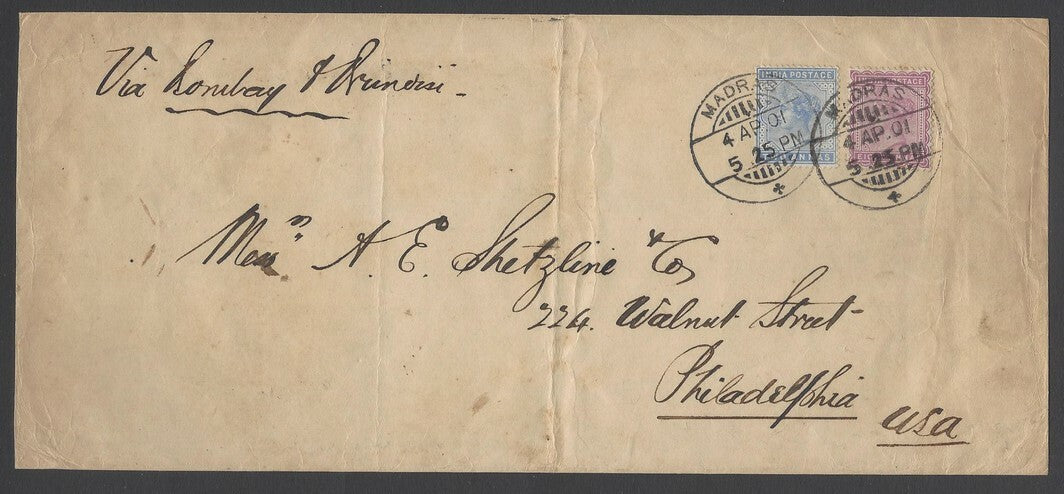 Via Bombay & Brindisi -
INDIA POSTAGE
MADRAS
4 AP.01
5.25 PM
MADRAS
4 AP.01
5.25 PM
Messrs A. E. Shetzline & Co,
224. Walnut Street
Philadelphia
USA